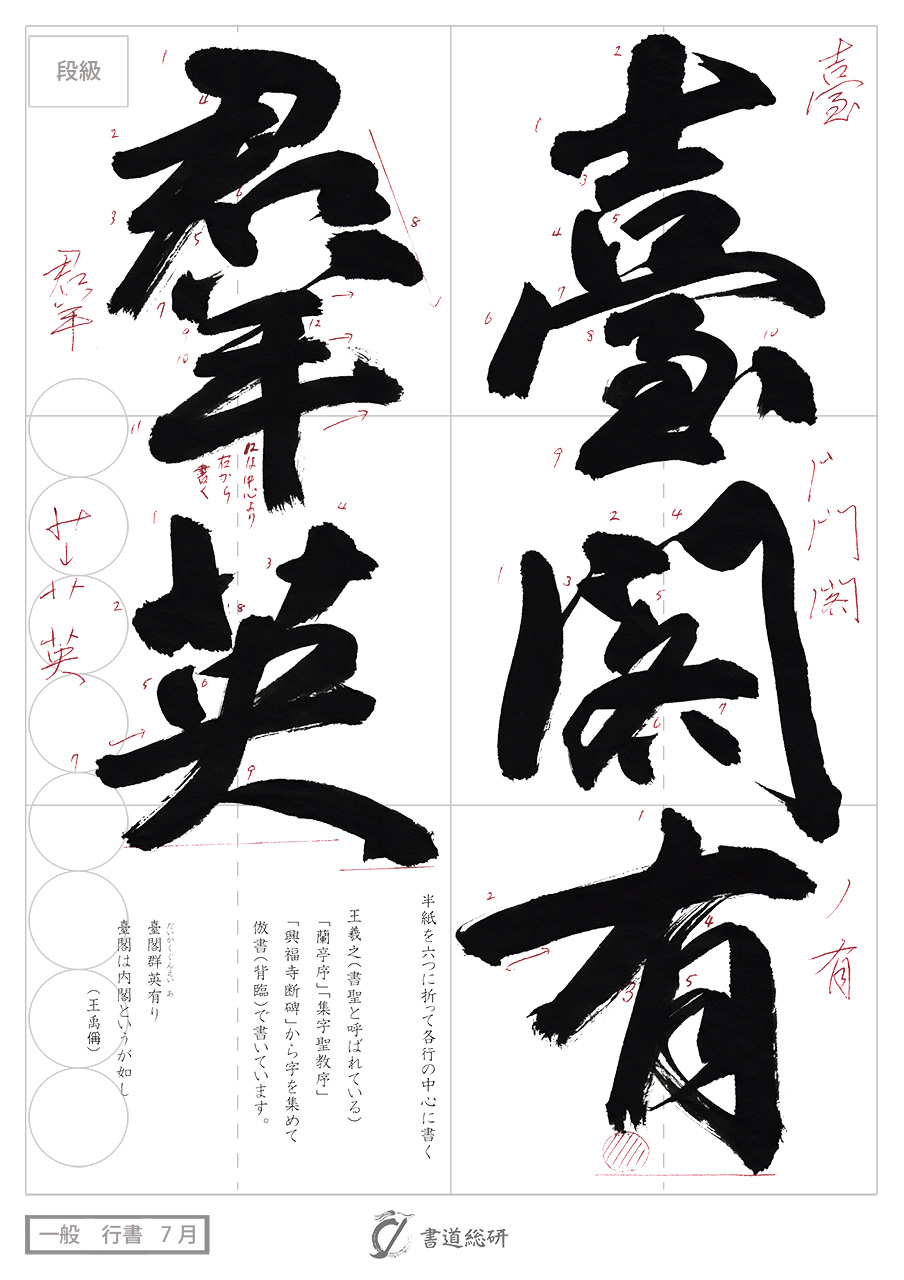 臺
門
閣
有
臺閣有
羣英
口は中心より
右から
書く
段級
羣
英
半紙を六つに折って各行の中心に書く
王羲之(書聖と呼ばれている)
「蘭亭序」「集字聖教序」
「興福寺断碑」から字を集めて
倣書(背臨)で書いています。
だいかくぐんえい あ
臺閣群英有り
臺閣は内閣というが如し
(王禹偁)
一般 行書 7月
書道総研